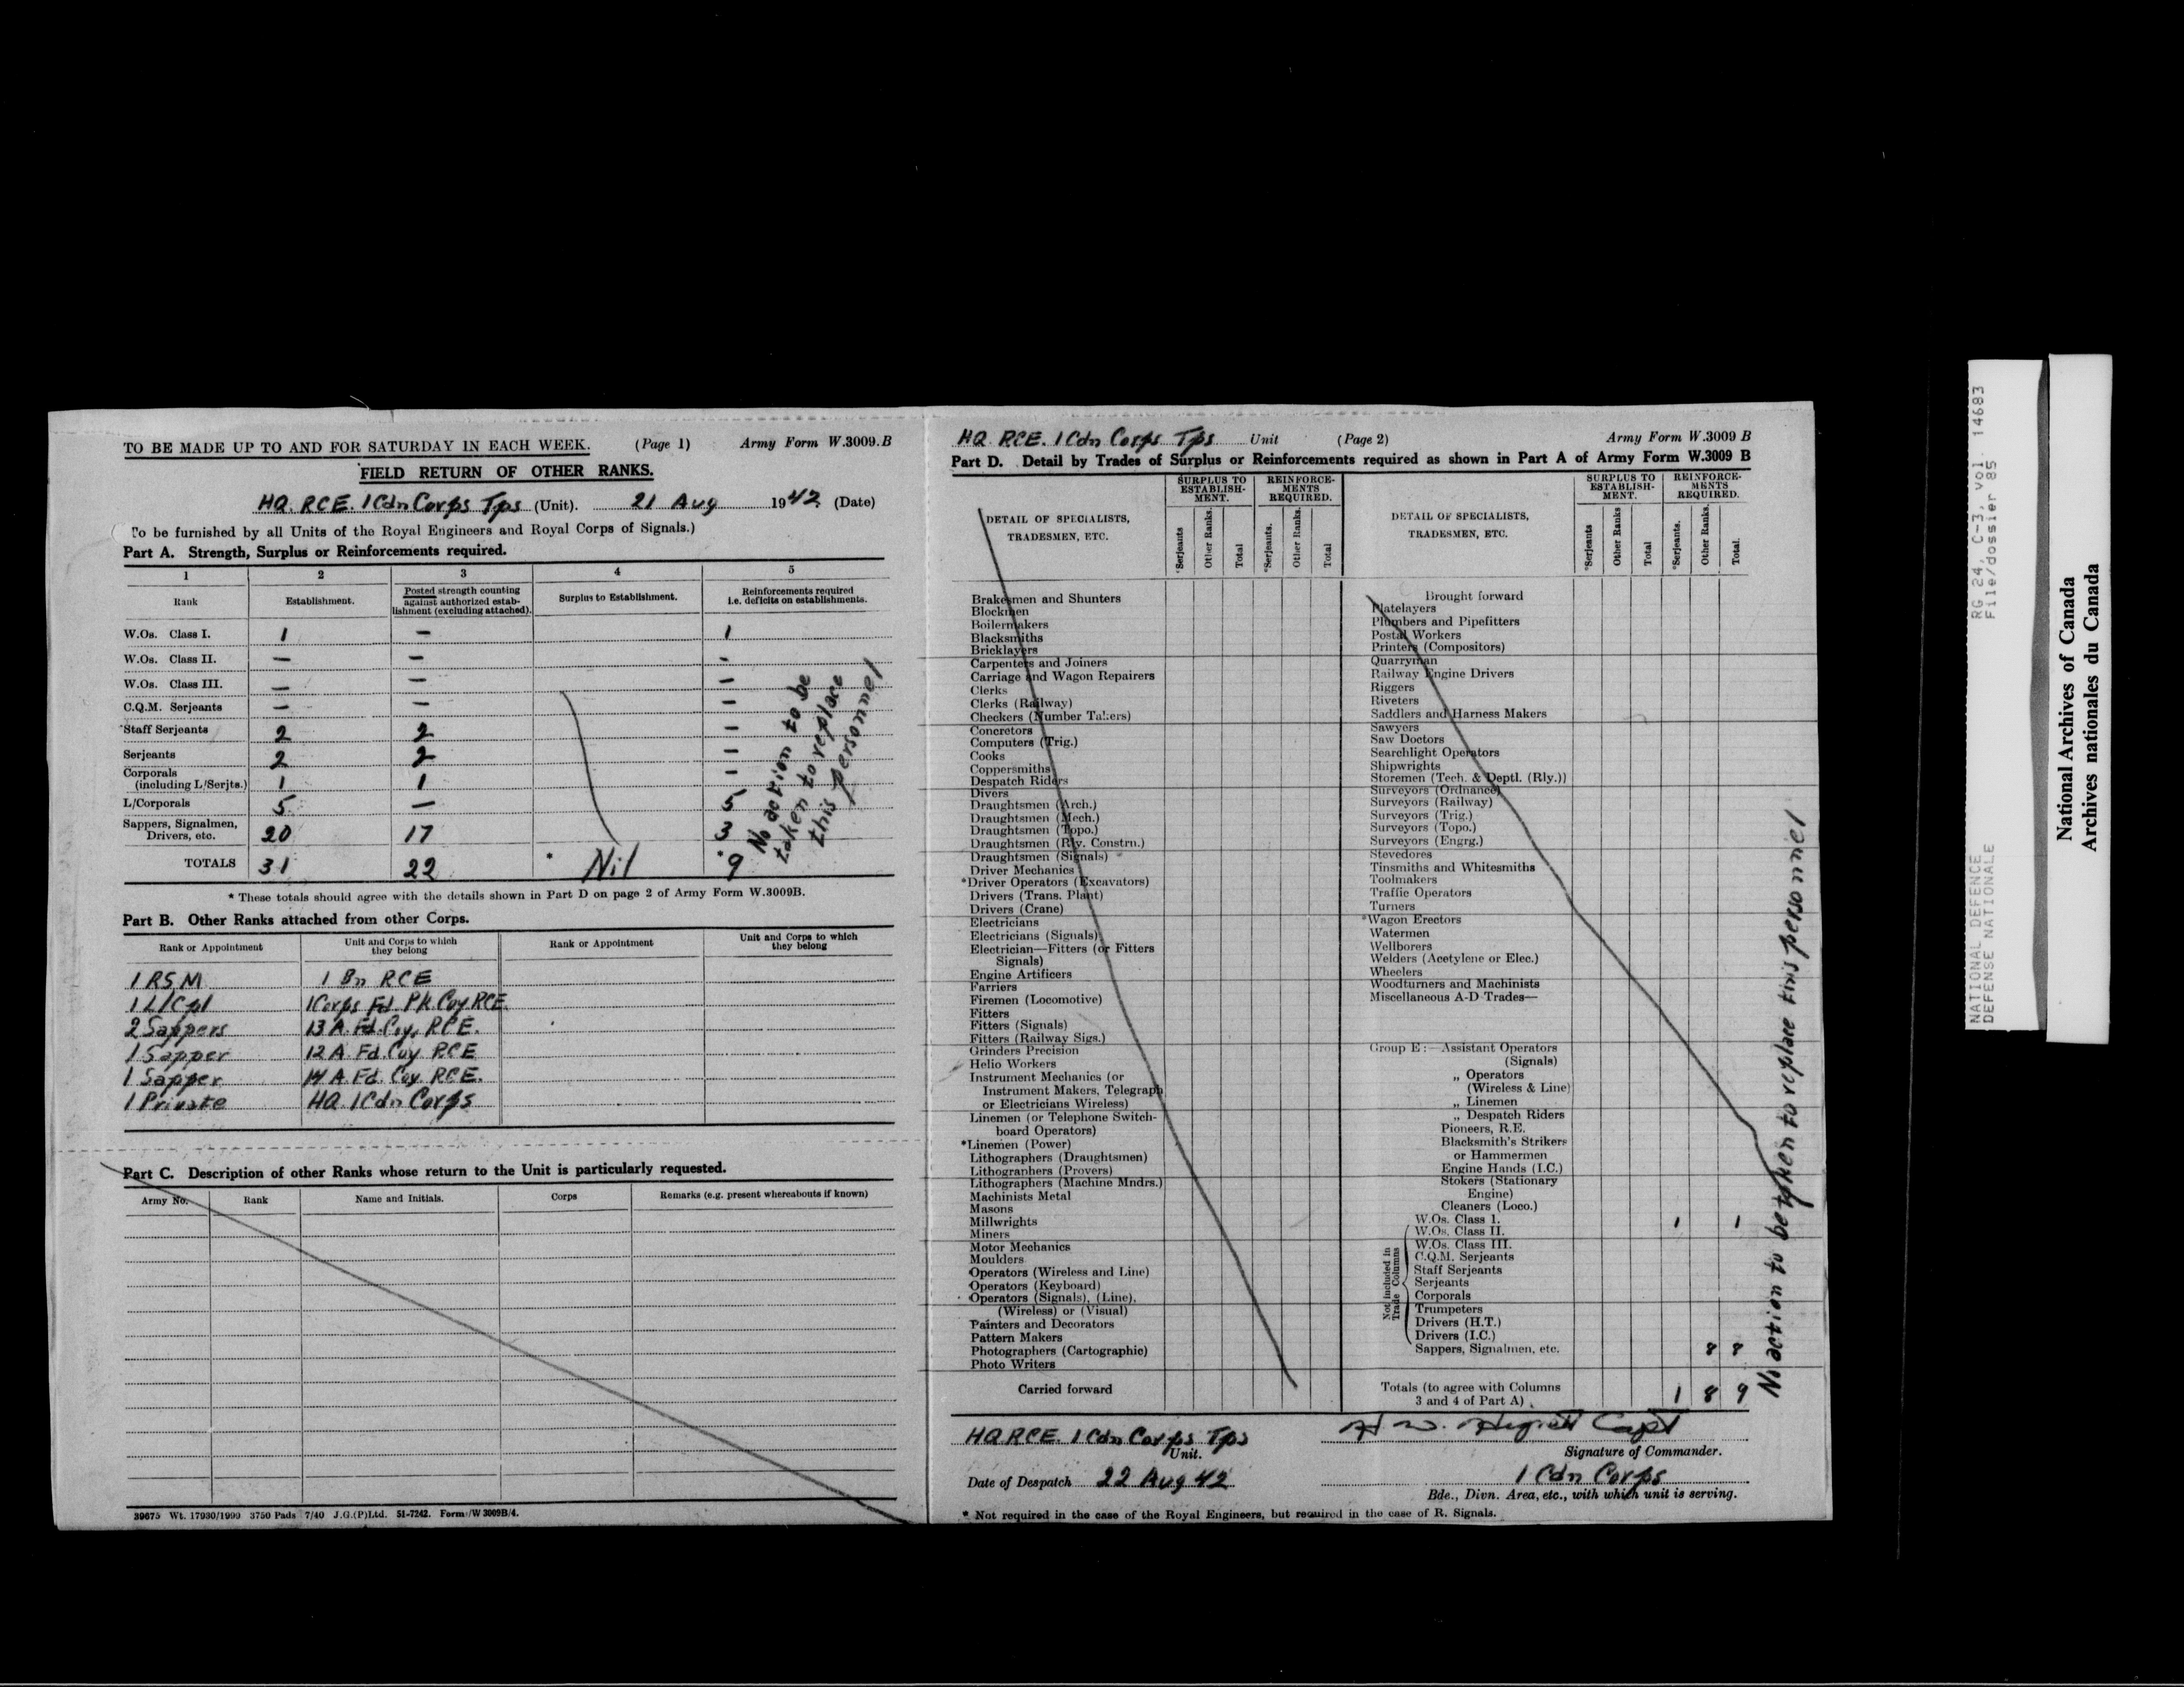 TO BE MADE UP TO AND FOR SATURDAY IN EACH WEEK. (Page 1) Army Form W.3009.B
FIELD RETURN OF OTHER RANKS.
HQ. RCE. 1 Cdn Corps Tps (Unit). 21 Aug 1942. (Date)
To be furnished by all Units of the Royal Engineers and Royal Corps of Signals.)
Part A. Strength, Surplus or Reinforcements required.
1 2 3 4 5
Rank Establishment. Posted strength counting against authorized estab-lishment (excluding attached). Surplus to Establishment. Reinforcements required i.e. deficits on establishments.
W.Os. Class I. 1 — 1
W.Os. Class II. — — -
W.Os. Class III. — — —
C.Q.M. Serjeants — — —
*Staff Serjeants 2 2 —
Serjeants 2 2 —
Corporals
(including L/Serjts.) 1 1 —
L/Corporals 5 — 5
Sappers, Signalmen,
Drivers, etc. 20 17 3
TOTALS 31 22 * Nil * 9
No action to be
taken to replace
this personnel
* These totals should agree with the details shown in Part D on page 2 of Army Form W.3009B.
Part B. Other Ranks attached from other Corps.
Rank or Appointment Unit and Corps to which they belong Rank or Appointment Unit and Corps to which they belong
1 RSM 1 Bn RCE
1 L/Cpl 1 Corps Fd. Pk. Coy. RCE.
2 Sappers 13 A. Fd. Coy. RCE.
1 Sapper 12 A. Fd. Coy RCE
1 Sapper 14 A. Fd. Coy. RCE.
1 Private HQ. 1 Cdn Corps
Part C. Description of other Ranks whose return to the Unit is particularly requested.
Army No. Rank Name and Initials. Corps Remarks (e.g. present whereabouts if known)
39675 Wt. 17930/1990 3750 Pads 7/40 J.G.(P)Ltd. 51-7242. Forms/W 3009B/4.
HQ. RCE. 1 Cdn Corps Tps Unit (Page 2) Army Form W.3009 B
Part D. Detail by Trades of Surplus or Reinforcements required as shown in Part A of Army Form W.3009 B
DETAIL OF SPECIALISTS,
TRADESMEN, ETC.
SURPLUS TO
ESTABLISH-
MENT.
REINFORCE-
MENTS
REQUIRED.
*Serjeants Other Ranks. Total *Serjeants. Other Ranks. Total
Brakesmen and Shunters
Blockmen
Boilermakers
Blacksmiths
Bricklayers
Carpenters and Joiners
Carriage and Wagon Repairers
Clerks
Clerks (Railway)
Checkers (Number Takers)
Concretors
Computers (Trig.)
Cooks
Coppersmiths
Despatch Riders
Divers
Draughtsmen (Arch.)
Draughtsmen (Mech.)
Draughtsmen (Topo.)
Draughtsmen (Rly. Constrn.)
Draughtsmen (Signals)
Driver Mechanics
*Driver Operators (Excavators)
Drivers (Trans. Plant)
Drivers (Crane)
Electricians
Electricians (Signals)
Electrician—Fitters (or Fitters
Signals)
Engine Artificers
Farriers
Firemen (Locomotive)
Fitters
Fitters (Signals)
Fitters (Railway Sigs.)
Grinders Precision
Helio Workers
Instrument Mechanics (or
Instrument Makers, Telegraph
or Electricians Wireless)
Linemen (or Telephone Switch-
board Operators)
*Linemen (Power)
Lithographers (Draughtsmen)
Lithographers (Provers)
Lithographers (Machine Mndrs.)
Machinists Metal
Masons
Millwrights
Miners
Motor Mechanics
Moulders
Operators (Wireless and Line)
Operators (Keyboard)
Operators (Signals), (Line),
(Wireless) or (Visual)
Painters and Decorators
Pattern Makers
Photographers (Cartographic)
Photo Writers
Carried forward
DETAIL OF SPECIALISTS,
TRADESMEN, ETC.
SURPLUS TO
ESTABLISH-
MENT.
REINFORCE-
MENTS
REQUIRED.
*Serjeants Other Ranks Total *Serjeants. Other Ranks. Total.
Brought forward
Platelayers
Plumbers and Pipefitters
Postal Workers
Printers (Compositors)
Quarryman
Railway Engine Drivers
Riggers
Riveters
Saddlers and Harness Makers
Sawyers
Saw Doctors
Searchlight Operators
Shipwrights
Storemen (Tech. & Deptl. (Rly.))
Surveyors (Ordnance)
Surveyors (Railway)
Surveyors (Trig.)
Surveyors (Topo.)
Surveyors (Engrg.)
Stevedores
Tinsmiths and Whitesmiths
Toolmakers
Traffic Operators
Turners
*Wagon Erectors
Watermen
Wellborers
Welders (Acetylene or Elec.)
Wheelers
Woodturners and Machinists
Miscellaneous A-D Trades—
Group E:—Assistant Operators
(Signals)
„ Operators
(Wireless & Line)
„ Linemen
„ Despatch Riders
Pioneers, R.E.
Blacksmith's Strikers
or Hammermen
Engine Hands (I.C.)
Stokers (Stationary
Engine)
Cleaners (Loco.)
Not included in
Trade Columns
W.Os. Class I. 1 1
W.Os. Class II.
W.Os. Class III.
C.Q.M. Serjeants
Staff Serjeants
Serjeants
Corporals
Trumpeters
Drivers (H.T.)
Drivers (I.C.)
Sappers, Signalmen, etc. 8 8
Totals (to agree with Columns
3 and 4 of Part A) 1 8 9
No action to be taken to replace this personnel
HQ RCE. 1 Cdn Corps Tps
Unit.
H W. Capt
Signature of Commander.
Date of Despatch 22 Aug 42
1 Cdn Corps
Bde., Divn. Area, etc., with which unit is serving.
* Not required in the case of the Royal Engineers, but required in the case of R. Signals.
NATIONAL DEFENCE RG 24, C-3, vol. 14683
DEFENSE NATIONALE File/dossier 85
National Archives of Canada
Archives nationales du Canada